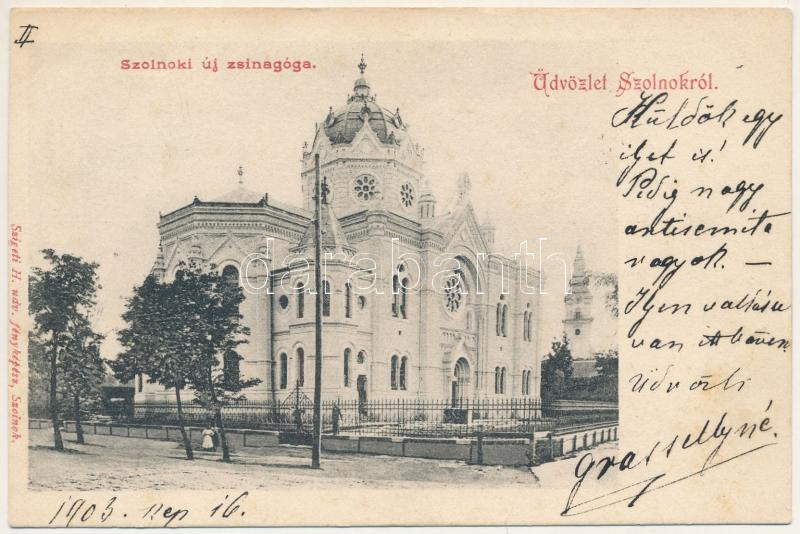 II
Szolnoki új zsinagóga.
Üdvözlet Szolnokról.
Küldök egy
ilyet is!
Pedig nagy
antisemita
vagyok. —
Ilyen vallású
van itt bőven
Üdvözli
Grassellyné.
darabanth
Szigeti H. udv. fényképész, Szolnok.
1903. sep 16.